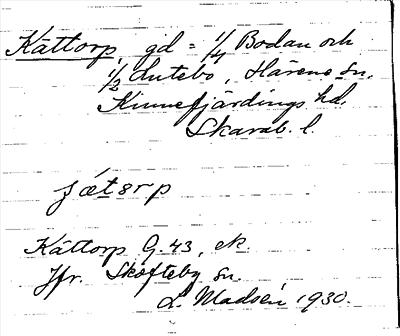 Kättorp, gd = 1/4 Bodan och
1/2 Lutebo, Härene sn.
Kinnefjärdings hd.
Skarab. l.
Kättorp G. 43, ek.
Jfr. Skofteby sn.
L. Madsén 1930.